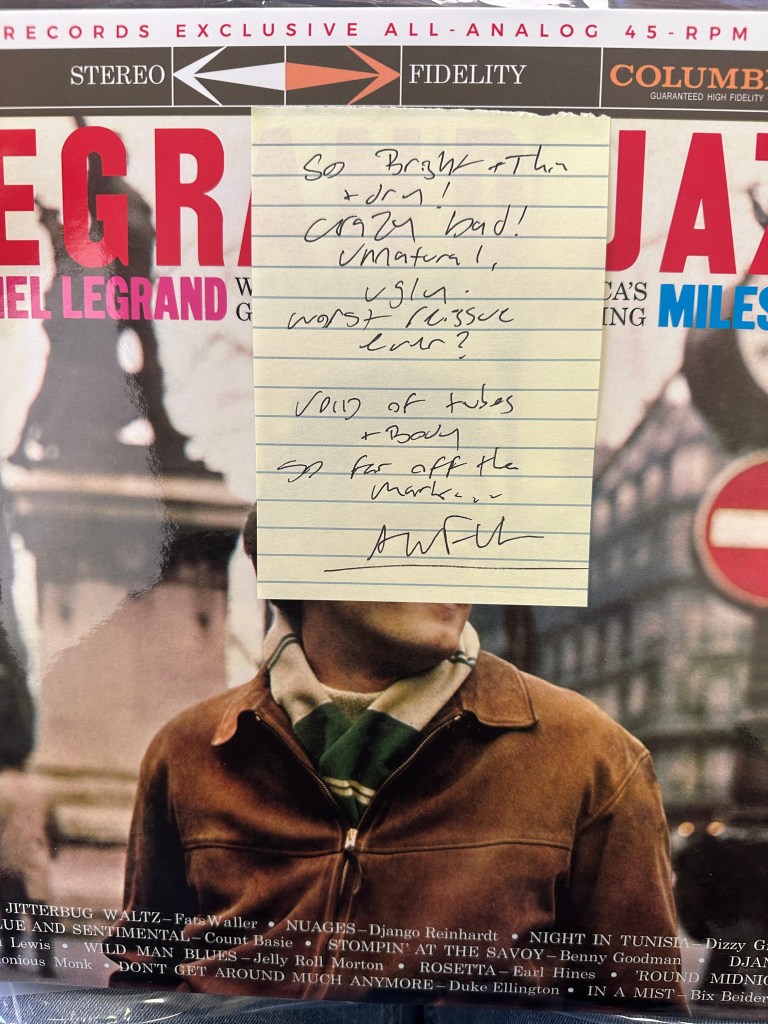 RECORDS EXCLUSIVE ALL-ANALOG 45-RPM
STEREO FIDELITY COLUMB
GUARANTEED HIGH FIDELITY
EGRA JAZ
EL LEGRAND W CA'S MILES
G ING
So Bright + Thin
+ dry!
crazy bad!
unnatural,
ugly.
worst reissue
ever?
VOID of tubes
+ Body
so far off the
mark...
AWFUL
JITTERBUG WALTZ–Fats Waller • NUAGES–Django Reinhardt • NIGHT IN TUNISIA–Dizzy G
LUE AND SENTIMENTAL–Count Basie • STOMPIN' AT THE SAVOY–Benny Goodman • DJAN
Lewis • WILD MAN BLUES–Jelly Roll Morton • ROSETTA–Earl Hines • 'ROUND MIDNIG
onious Monk • DON'T GET AROUND MUCH ANYMORE–Duke Ellington • IN A MIST–Bix Beider